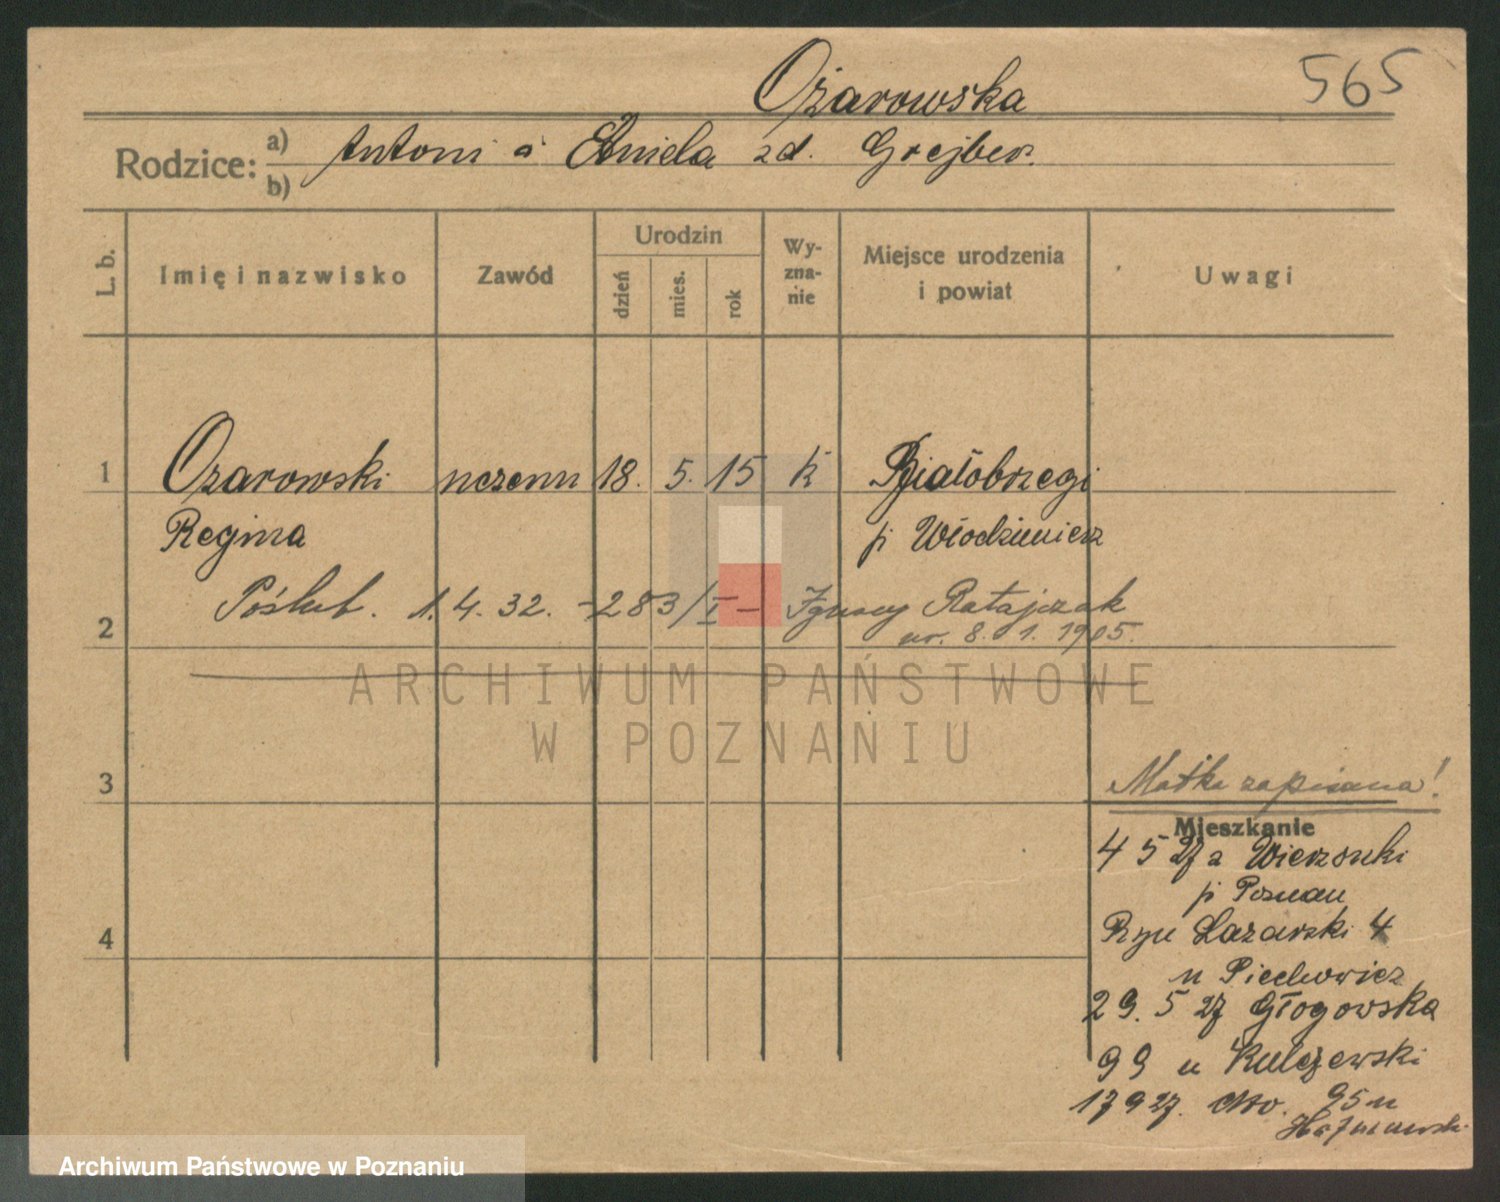 Ożarowska
565
Rodzice: a) Antoni a Aniela zd. Grejber.
b)
L. b.
Imię i nazwisko
Zawód
Urodzin
dzień
mies.
rok
Wy-
zna-
nie
Miejsce urodzenia
i powiat
Uwagi
1 Ozarowski uczenn 18. 5. 15 k Białobrzegi
Regina p Włodzimierz
Poślub. 1. 4. 32. -283/I- Ignacy Ratajczak
2 ur. 8. 1. 1905.
3
Matka zapisana!
Mieszkanie
4 5 27 z Wierzonki
p Poznan
4 Ryn Lazarski 4
u Piechowicz
29. 5 27 Głogowska
99 u Kulczewski
17 9 27. dto. 95 u
ARCHIWUM PAŃSTWOWE
W POZNANIU
Archiwum Państwowe w Poznaniu